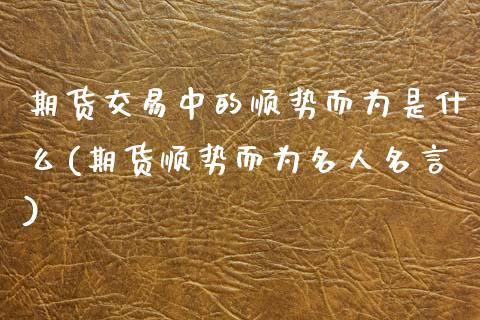 期货交易中的顺势而为是什
么(期货顺势而为名人名言
)